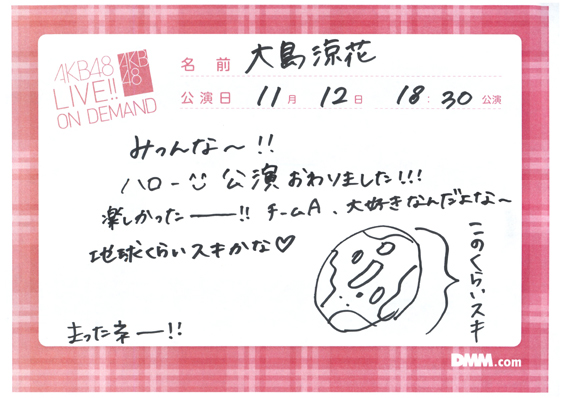 AKB48
LIVE!!
ON DEMAND
AKB
48
名前 大島涼花
公演日 11月 12日 18:30 公演
みっんな〜!!
ハロー 公演おわりました!!!
楽しかったーー!! チームA、大好きなんだよな〜
地球くらいスキかな♡
このくらいスキ
まったネー!!
DMM.com